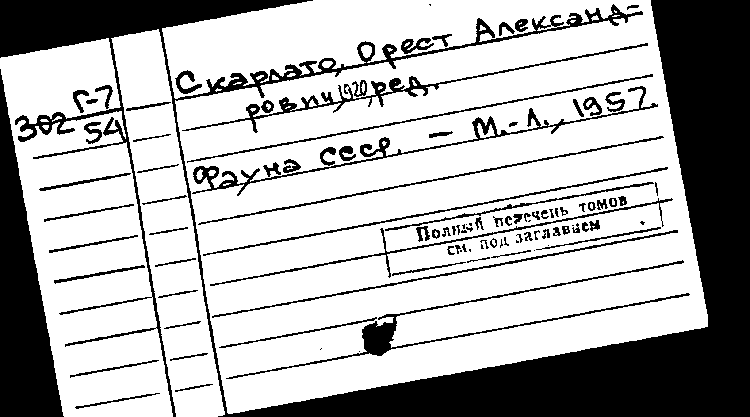 Г-7
302 54
Скарлато, Орест Александ-
рович, 1920, ред.
Фауна СССР. — М.-Л., 1957.
Полный перечень томов
см. под заглавием